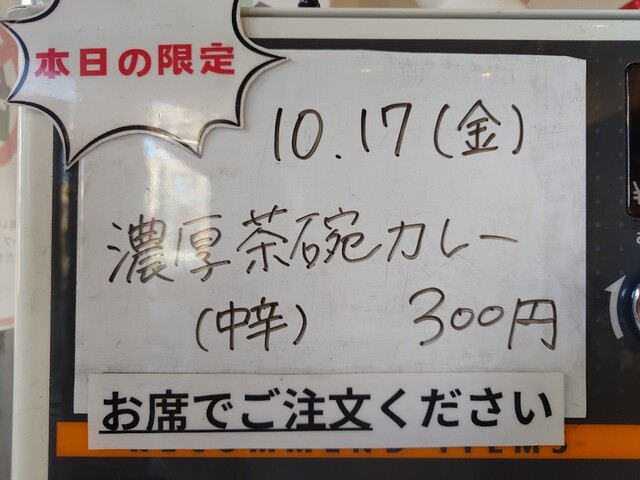 本日の限定
10.17(金)
濃厚茶碗カレー
(中辛) 300円
お席でご注文ください
RECOMMEND ITEMS